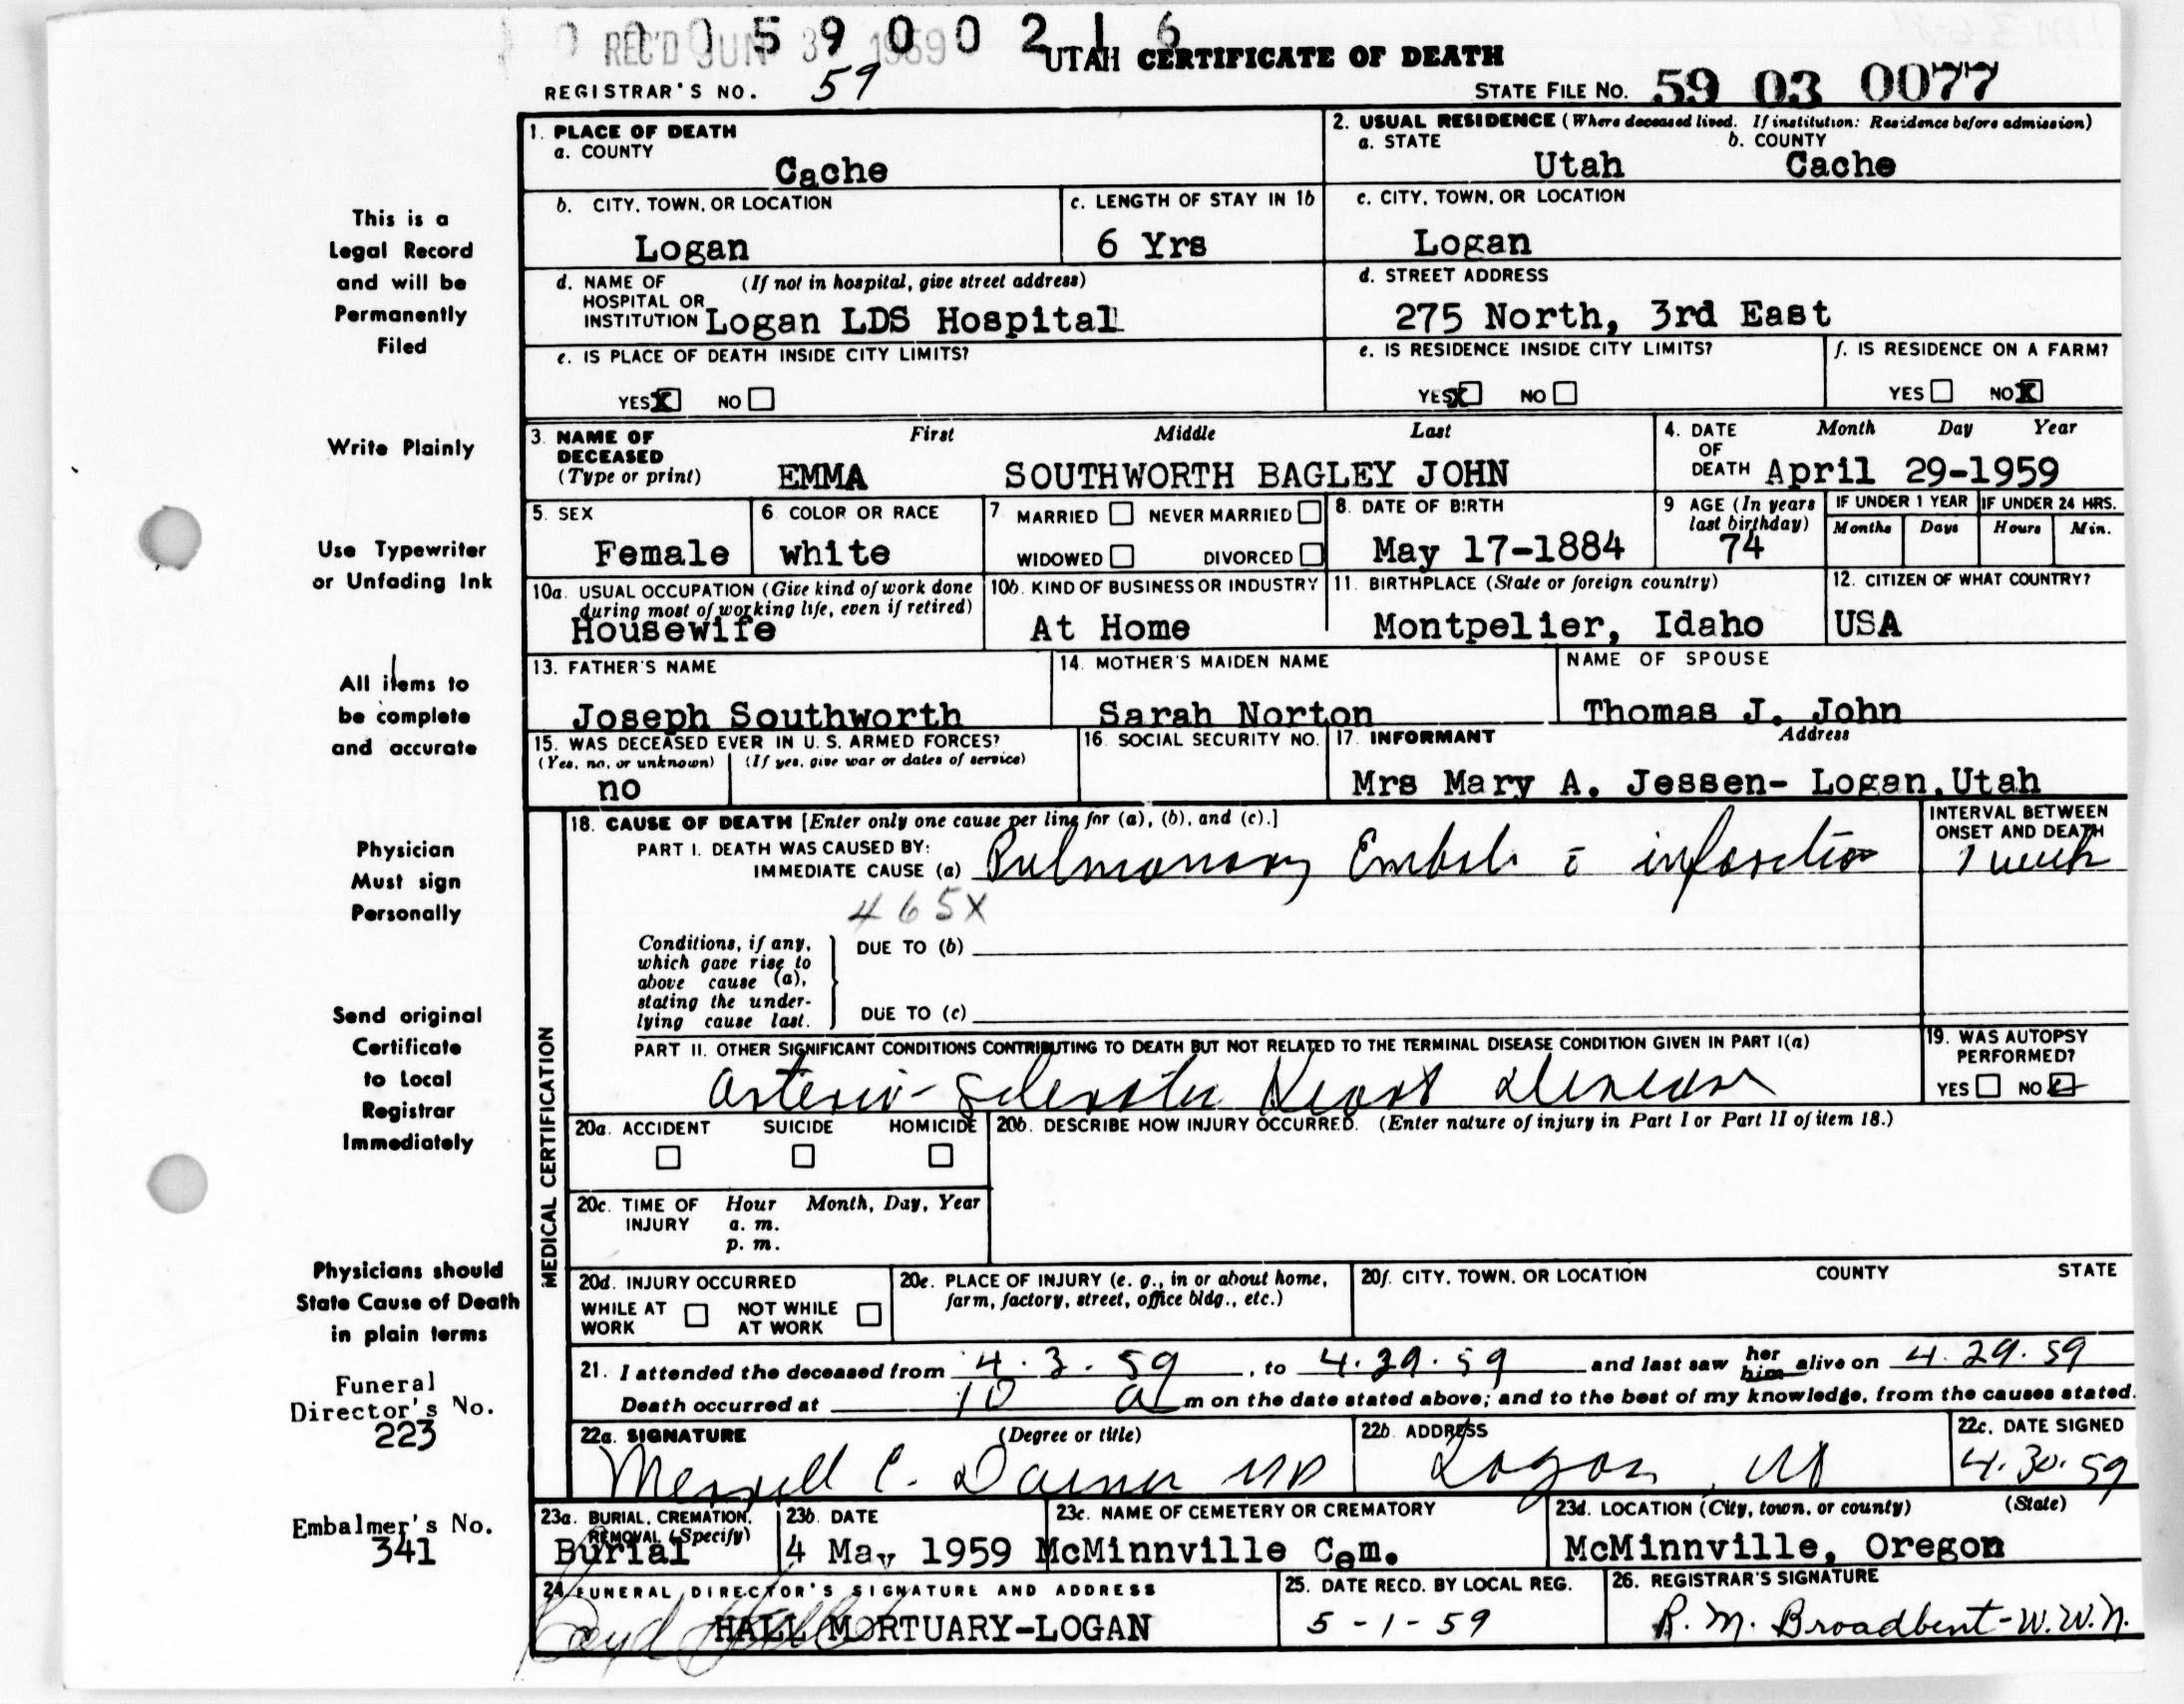 REC'D JUN 3 1959
5 9 0 0 2 1 6
UTAH CERTIFICATE OF DEATH
REGISTRAR'S NO. 59
STATE FILE NO. 59 03 0077
1. PLACE OF DEATH
a. COUNTY
Cache
2. USUAL RESIDENCE (Where deceased lived. If institution: Residence before admission)
a. STATE b. COUNTY
Utah Cache
b. CITY, TOWN, OR LOCATION
Logan
c. LENGTH OF STAY IN 1b
6 Yrs
c. CITY, TOWN, OR LOCATION
Logan
d. NAME OF (If not in hospital, give street address)
HOSPITAL OR
INSTITUTION Logan LDS Hospital
d. STREET ADDRESS
275 North, 3rd East
e. IS PLACE OF DEATH INSIDE CITY LIMITS?
YES X NO
e. IS RESIDENCE INSIDE CITY LIMITS?
YES X NO
f. IS RESIDENCE ON A FARM?
YES NO X
3. NAME OF First Middle Last
DECEASED
(Type or print) EMMA SOUTHWORTH BAGLEY JOHN
4. DATE Month Day Year
OF
DEATH April 29-1959
5. SEX
Female
6. COLOR OR RACE
white
7 MARRIED NEVER MARRIED
WIDOWED DIVORCED
8. DATE OF BIRTH
May 17-1884
9 AGE (In years
last birthday)
74
IF UNDER 1 YEAR IF UNDER 24 HRS.
Months Days Hours Min.
10a. USUAL OCCUPATION (Give kind of work done
during most of working life, even if retired)
Housewife
10b. KIND OF BUSINESS OR INDUSTRY
At Home
11. BIRTHPLACE (State or foreign country)
Montpelier, Idaho
12. CITIZEN OF WHAT COUNTRY?
USA
13. FATHER'S NAME
Joseph Southworth
14. MOTHER'S MAIDEN NAME
Sarah Norton
NAME OF SPOUSE
Thomas J. John
15. WAS DECEASED EVER IN U. S. ARMED FORCES?
(Yes, no, or unknown) (If yes, give war or dates of service)
no
16. SOCIAL SECURITY NO.
17. INFORMANT Address
Mrs Mary A. Jessen- Logan,Utah
MEDICAL CERTIFICATION
18. CAUSE OF DEATH [Enter only one cause per line for (a), (b), and (c).]
PART I. DEATH WAS CAUSED BY:
IMMEDIATE CAUSE (a) Pulmonary Emboli c̄ infarction
INTERVAL BETWEEN
ONSET AND DEATH
1 week
465X
Conditions, if any,
which gave rise to
above cause (a),
stating the under-
lying cause last.
DUE TO (b)
DUE TO (c)
PART II. OTHER SIGNIFICANT CONDITIONS CONTRIBUTING TO DEATH BUT NOT RELATED TO THE TERMINAL DISEASE CONDITION GIVEN IN PART I(a)
Arterio-Sclerotic Heart disease
19. WAS AUTOPSY
PERFORMED?
YES NO
20a. ACCIDENT SUICIDE HOMICIDE
20b. DESCRIBE HOW INJURY OCCURRED. (Enter nature of injury in Part I or Part II of item 18.)
20c. TIME OF Hour Month, Day, Year
INJURY a. m.
p. m.
20d. INJURY OCCURRED
WHILE AT NOT WHILE
WORK AT WORK
20e. PLACE OF INJURY (e. g., in or about home,
farm, factory, street, office bldg., etc.)
20f. CITY, TOWN, OR LOCATION COUNTY STATE
21. I attended the deceased from 4.3.59, to 4.29.59 and last saw her him alive on 4.29.59
Death occurred at 10 a m on the date stated above; and to the best of my knowledge, from the causes stated.
22a. SIGNATURE (Degree or title)
Merrill C. Daines MD
22b. ADDRESS
Logan Ut
22c. DATE SIGNED
4.30.59
23a. BURIAL, CREMATION,
REMOVAL (Specify)
Burial
23b. DATE
4 May 1959
23c. NAME OF CEMETERY OR CREMATORY
McMinnville Cem.
23d. LOCATION (City, town, or county) (State)
McMinnville, Oregon
24. FUNERAL DIRECTOR'S SIGNATURE AND ADDRESS
HALL MORTUARY-LOGAN
25. DATE RECD. BY LOCAL REG.
5-1-59
26. REGISTRAR'S SIGNATURE
R. M. Broadbent-W.W.N.
This is a
Legal Record
and will be
Permanently
Filed
Write Plainly
Use Typewriter
or Unfading Ink
All items to
be complete
and accurate
Physician
Must sign
Personally
Send original
Certificate
to Local
Registrar
Immediately
Physicians should
State Cause of Death
in plain terms
Funeral
Director's No.
223
Embalmer's No.
341